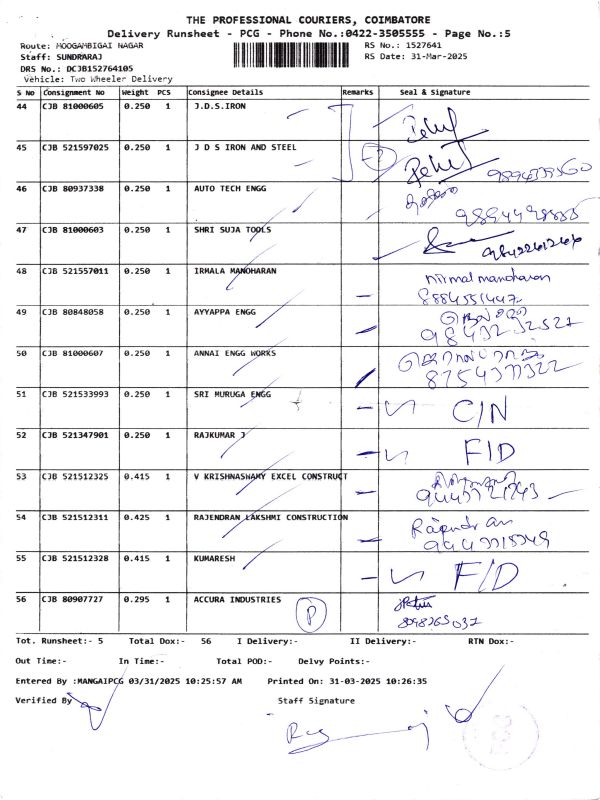 THE PROFESSIONAL COURIERS, COIMBATORE
Delivery Runsheet - PCG - Phone No.:0422-3505555 - Page No.:5
Route: MOOGAMBIGAI NAGAR RS No.: 1527641
Staff: SUNDRARAJ RS Date: 31-Mar-2025
DRS No.: DCJB152764105
Vehicle: Two Wheeler Delivery
S No Consignment No Weight PCS Consignee Details Remarks Seal & Signature
44 CJB 81000605 0.250 1 J.D.S.IRON
45 CJB 521597025 0.250 1 J D S IRON AND STEEL
46 CJB 80937338 0.250 1 AUTO TECH ENGG
47 CJB 81000603 0.250 1 SHRI SUJA TOOLS
48 CJB 521557011 0.250 1 IRMALA MANOHARAN nirmal manoharan
8884551447
49 CJB 80848058 0.250 1 AYYAPPA ENGG
50 CJB 81000607 0.250 1 ANNAI ENGG WORKS
51 CJB 521533993 0.250 1 SRI MURUGA ENGG C/N
52 CJB 521347901 0.250 1 RAJKUMAR J F/D
53 CJB 521512325 0.415 1 V KRISHNASHAMY EXCEL CONSTRUCT
54 CJB 521512311 0.425 1 RAJENDRAN LAKSHMI CONSTRUCTION Rajendran
55 CJB 521512328 0.415 1 KUMARESH F/D
56 CJB 80907727 0.295 1 ACCURA INDUSTRIES P
Tot. Runsheet:- 5 Total Dox:- 56 I Delivery:- II Delivery:- RTN Dox:-
Out Time:- In Time:- Total POD:- Delvy Points:-
Entered By :MANGAIPCG 03/31/2025 10:25:57 AM Printed On: 31-03-2025 10:26:35
Verified By Staff Signature